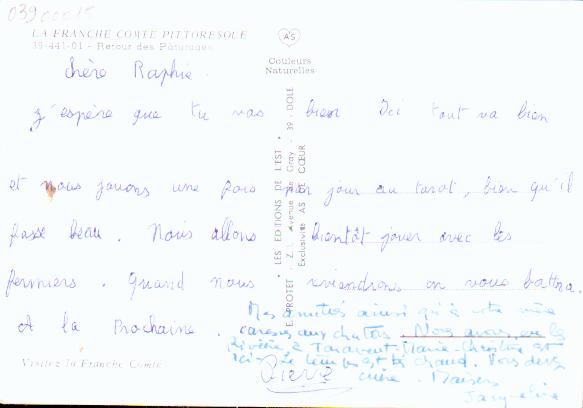 03900015
LA FRANCHE COMTÉ PITTORESQUE
39-441-01 - Retour des Pâturages
AS
Couleurs
Naturelles
Chère Raphie.
j'espère que tu vas bien Ici tout va bien
et nous jouons une fois par jour au tarot, bien qu'il
fasse beau. Nous allons bientôt jouer avec les
fermiers. Quand nous reviendrons on vous battra.
A la Prochaine.
Pierre
Mes amitiés ainsi qu'à votre mère
caresses aux chatons. Nous avons eu les
Rivière & Taravent, Marie-Christine et
ici. Le temps est chaud. Vous devez
cuire. Baisers
Jacqueline
• LES EDITIONS DE L'EST •
E. PROTET - Z. I. Avenue de Gray - 39 - DOLE
Exclusivité AS DE CŒUR
Visitez la Franche Comté